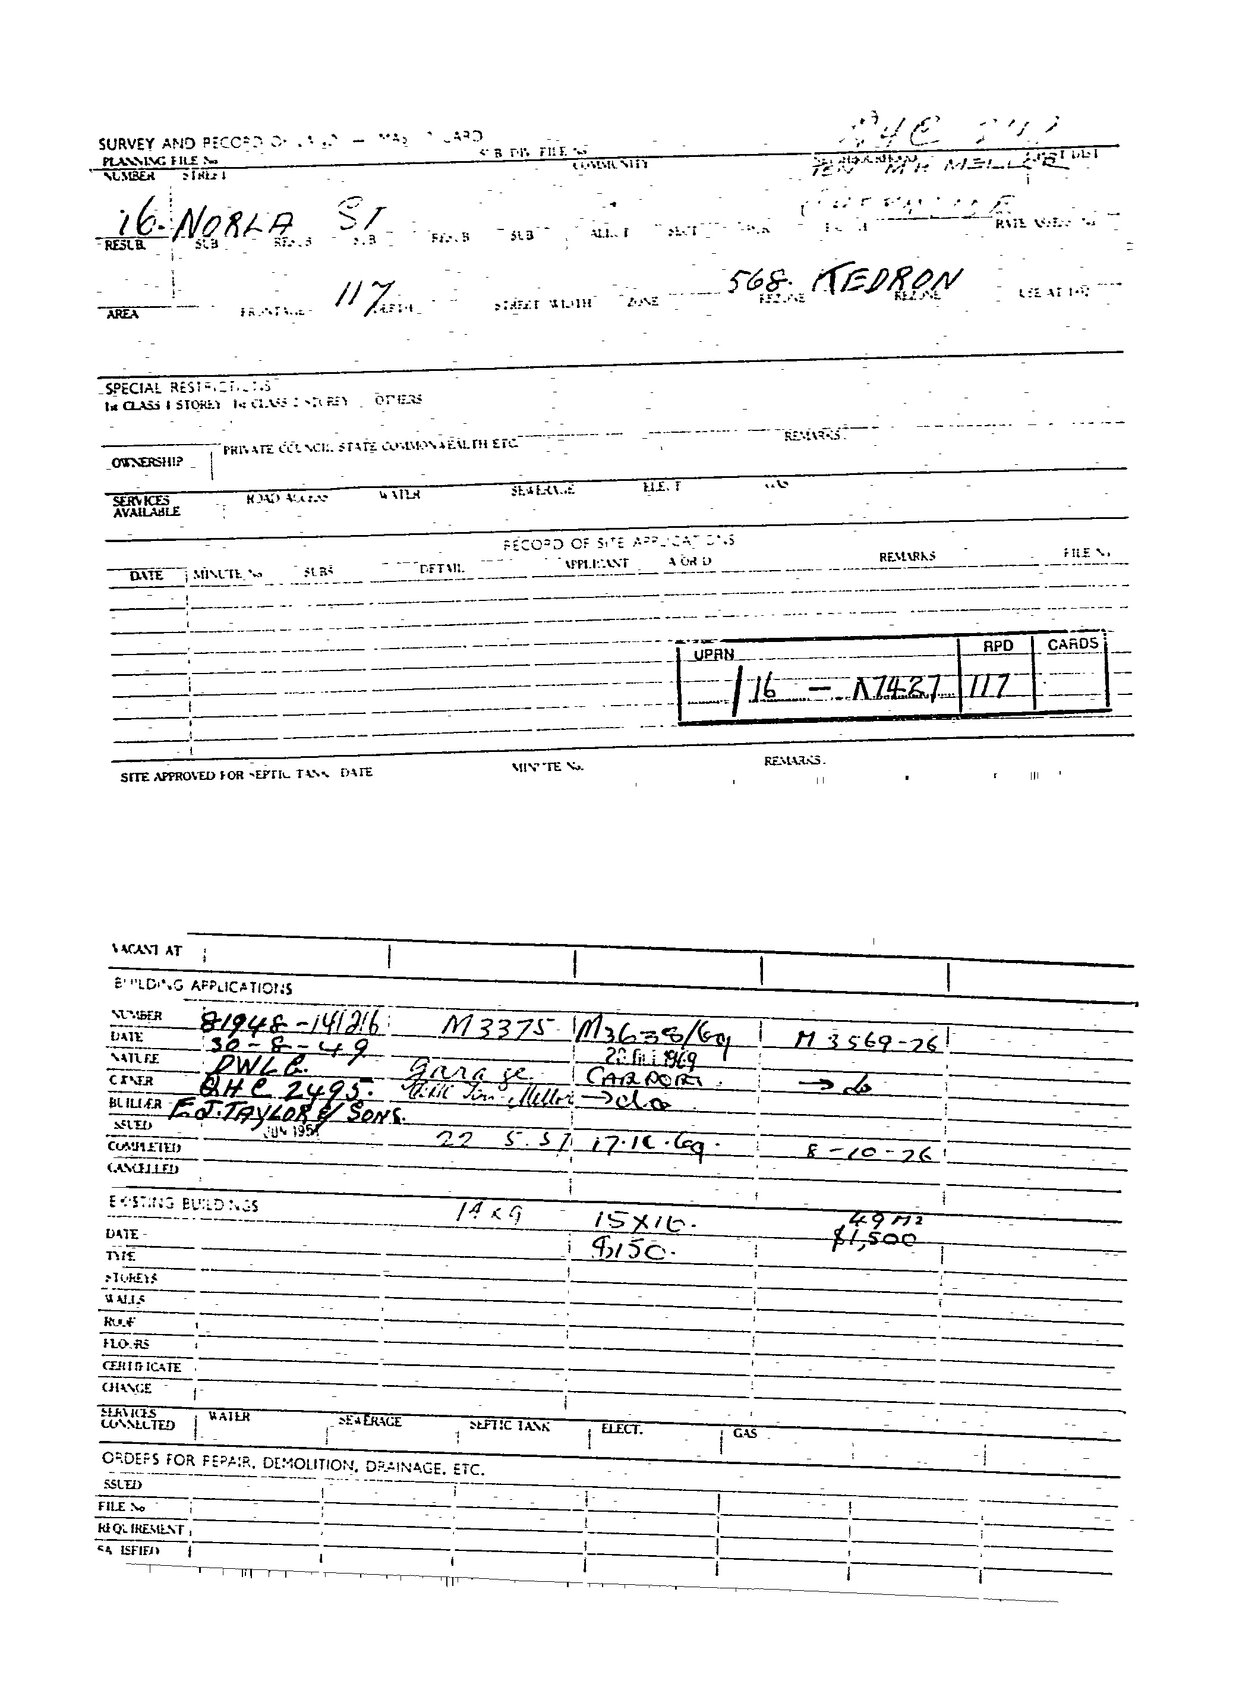 SURVEY AND RECORD
PLANNING FILE No SUB DIV. FILE No COMMUNITY
NUMBER STREET TEN MR MELLOR
16. NORLA ST
RESUB. SUB RESUB SUB RESUB SUB ALLOT SECT
117 568. KEDRON
AREA FRONTAGE DEPTH STREET WIDTH ZONE REZONE REZONE USE AT
SPECIAL RESTRICTIONS
1st CLASS 1 STOREY 1st CLASS 2 STOREY OTHERS
PRIVATE COUNCIL STATE COMMONWEALTH ETC REMARKS.
OWNERSHIP
SERVICES AVAILABLE ROAD ACCESS WATER SEWERAGE ELECT GAS
RECORD OF SITE APPLICATIONS
DATE MINUTE No SUBS DETAIL APPLICANT A OR D REMARKS FILE No
UPRN RPD CARDS
/16 - 117
SITE APPROVED FOR SEPTIC TANK DATE MINUTE No. REMARKS.
VACANT AT
BUILDING APPLICATIONS
NUMBER 81948-141216 M3375 M3638/69 M 3569-76
DATE 30-8-49 1969
NATURE DWLG. garage CARPORT. → do
OWNER QHC 2495. Mellor → do
BUILDER E.J. TAYLOR & SONS.
ISSUED JUN 195
COMPLETED 22 5.57 17.10.69. 8-10-76
CANCELLED
EXISTING BUILDINGS 14 x 9 15X10. 49 M2
DATE $150. $1,500
TYPE
STOREYS
WALLS
ROOF
FLOORS
CERTIFICATE
CHANGE
SERVICES CONNECTED WATER SEWERAGE SEPTIC TANK ELECT. GAS
ORDERS FOR REPAIR, DEMOLITION, DRAINAGE, ETC.
ISSUED
FILE No
REQUIREMENT
SATISFIED